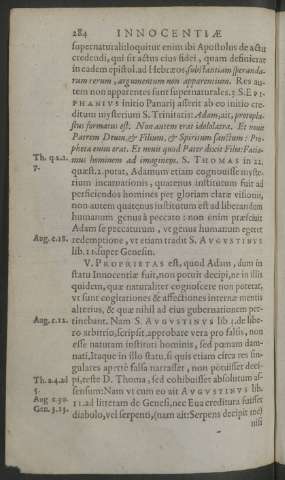 284 INNOCENTIÆ
supernaturali: loquitur enim ibi Apostolus de actu
credendi, qui sit actus eius fidei, quam definierat
in eadem epistol. ad Hebræos, substantiam speranda-
rum rerum, argumentum non apparentium. Res au-
tem non apparentes sunt supernaturales. 3 S. EPI-
PHANIVS initio Panarij asserit ab eo initio cre-
ditum mysterium S. Trinitatis: Adam, ait, protopla-
stus formatus est. Non autem erat idololatra. Et nouit
Patrem Deum, & Filium, & Spiritum sanctum: Pro-
pheta enim erat. Et nouit quod Pater dicit Filio: Facia-
mus hominem ad imaginem. S. THOMAS in 22.
Th. q.2.a.
7.
quæst. 2. putat, Adamum etiam cognouisse myste-
rium incarnationis, quatenus institutum fuit ad
perficiendos homines per gloriam claræ visionis,
non autem quatenus institutum est ad liberandum
humanum genus à peccato: non enim præsciuit
Adam se peccaturum, vt genus humanum egeret
Aug. c.18. redemptione, vt etiam tradit S. AVGVSTINVS
lib. 11. super Genesin.
V. PROPRIETAS est, quod Adam, dum in
statu Innocentiæ fuit, non potuit decipi, ne in illis
quidem, quæ naturaliter cognoscere non poterat,
vt sunt cogitationes & affectiones internæ mentis
alterius, & quæ nihil ad eius gubernationem per-
Aug. c.12. tinebant. Nam S. AVGVSTINVS lib. 1. de libe-
ro arbitrio, scripsit, approbare vera pro falsis, non
esse naturam instituti hominis, sed pœnam dam-
nati. Itaque in illo statu, si quis etiam circa res sin-
gulares apertè falsa narrasset, non potuisset deci-
Th. 2.4.ad pi, teste D. Thoma, sed cohibuisset absolutum as-
5.
sensum: Nam vt cum eo ait AVGVSTINVS
Aug. c.30. 11. ad litteram de Genesi, nec Eua creditura fuisset
Gen. 3.13. diabolo, vel serpenti, (nam ait: Serpens decipit me)
nisi